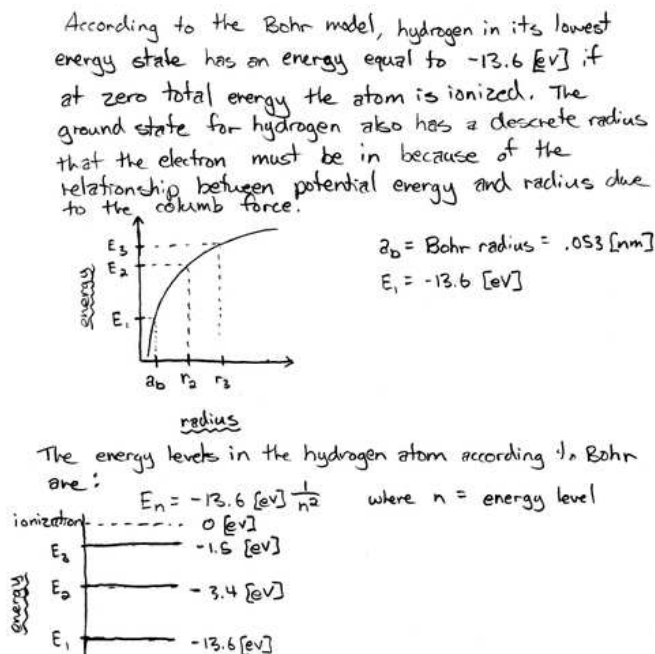 According to the Bohr model, hydrogen in its lowest
energy state has an energy equal to -13.6 [eV] if
at zero total energy the atom is ionized. The
ground state for hydrogen also has a descrete radius
that the electron must be in because of the
relationship between potential energy and radius due
to the columb force.
E₃
E₂
E₁
energy
a_b r₂ r₃
radius
a_b = Bohr radius = .053 [nm]
E₁ = -13.6 [eV]
The energy levels in the hydrogen atom according to Bohr
are:
Eₙ = -13.6 [eV] 1/n² where n = energy level
ionization 0 [eV]
E₃ -1.5 [eV]
E₂ -3.4 [eV]
E₁ -13.6 [eV]
energy